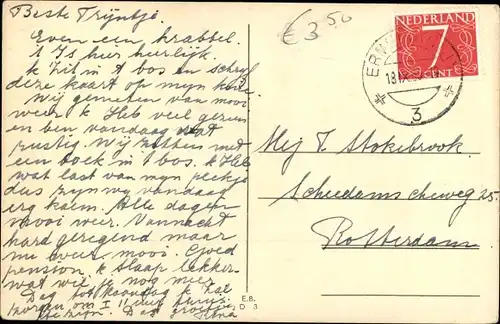 Beste Trijntje.
Even een krabbel.
't Is hier heerlijk.
k Zit in 't bos en schrijf
deze kaart op mijn
Wij genieten van mooi
weer k Heb veel gezien
en ben vandaag wat
rustig Wij zitten met
een boek in 't bos. k Heb
wat last van mijn
dus zijn wij vandaag
erg kalm. Alle dagen
mooi weer. Vannacht
hard geregend maar
nu weer mooi. Goed
pension. k Slaap lekker.
wat wil je nog meer
Dag tot Maandag k Zal
zorgen om 11 uur thuis
te zijn. Dag groetjes
€ 3,50
NEDERLAND
7
CENT
ERM
18
3
Mej T. Stokebrook.
Schiedamscheweg 25.
Rotterdam
E.B.
D 3